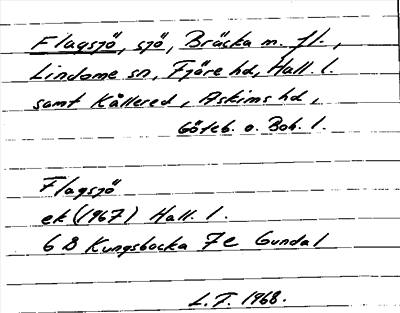 Flagsjö, sjö, Bräcka m. fl.,
Lindome sn, Fjäre hd, Hall. l.
samt Kållered, Askims hd,
Göteb. o. Boh. l.
Flagsjö
ek (1967) Hall. l.
6B Kungsbacka 7e Gundal
L.F. 1968.